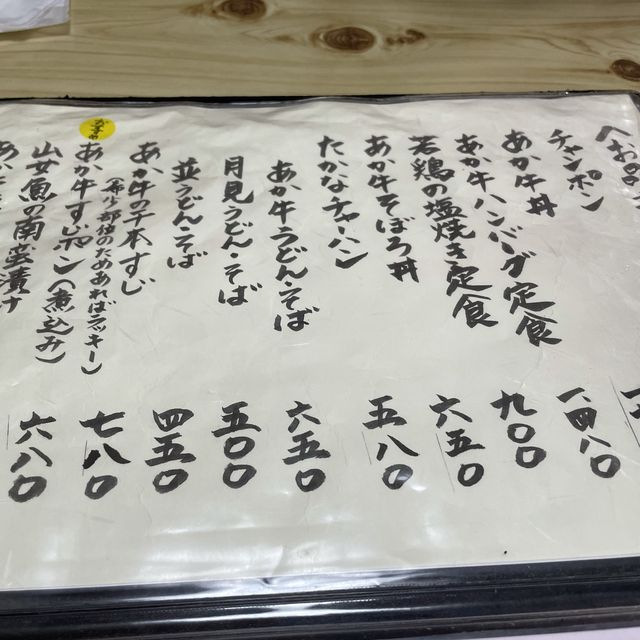 チャンポン
あか牛丼
あか牛ハンバーグ定食
若鶏の塩焼き定食
あか牛そぼろ丼
たかなチャーハン
あか牛うどん・そば
月見うどん・そば
並うどん・そば
あか牛の千本すじ
(希少部位のためあればラッキー)
おすすめ
あか牛すじポン(煮込み)
山女魚の南蛮漬け
一、四八〇
九〇〇
六五〇
五八〇
六五〇
五〇〇
四五〇
七八〇
六八〇